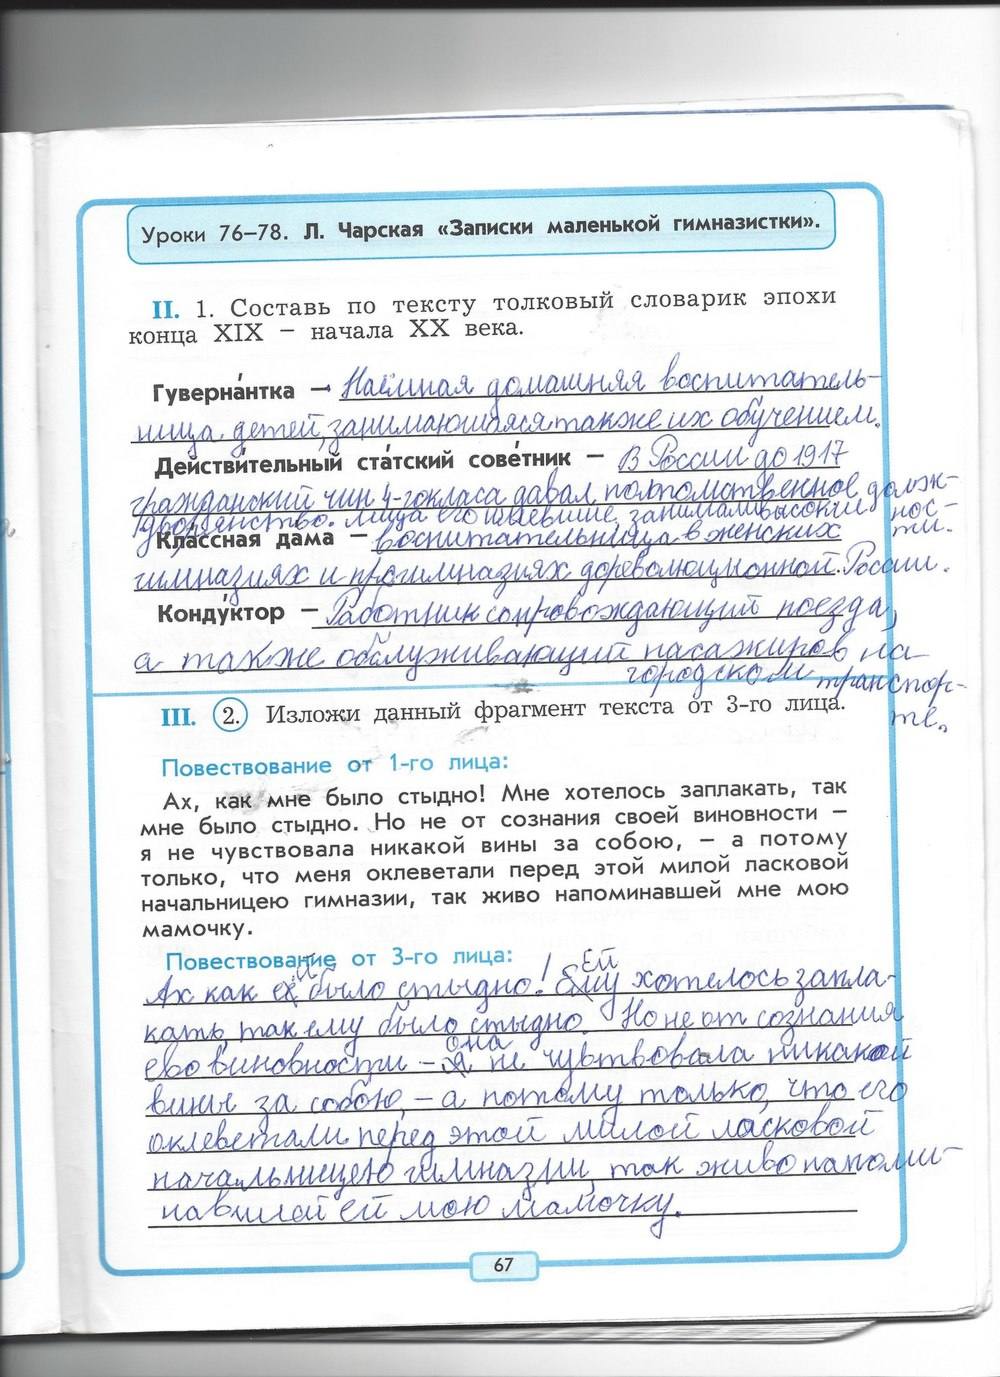 Уроки 76–78. Л. Чарская «Записки маленькой гимназистки».
II. 1. Составь по тексту толковый словарик эпохи
конца XIX – начала XX века.
Гуверна́нтка – Наёмная домашняя воспитатель-
ница детей, занимающаяся также их обучением.
Действи́тельный ста́тский сове́тник – В России до 1917
гражданский чин 4-го класа давал потомственное
дворянство. Лица его имевшие, занимали высокий долж-
ности.
Кла́ссная да́ма – воспитательница в женских
гимназиях и прогимназиях дореволюционной России.
Конду́ктор – Работник сопровождающий поезда,
а также обслуживающий пасажиров на
городском транспор-
те.
III. 2. Изложи данный фрагмент текста от 3-го лица.
Повествование от 1-го лица:
Ах, как мне было стыдно! Мне хотелось заплакать, так
мне было стыдно. Но не от сознания своей виновности –
я не чувствовала никакой вины за собою, – а потому
только, что меня оклеветали перед этой милой ласковой
начальницею гимназии, так живо напоминавшей мне мою
мамочку.
Повествование от 3-го лица:
Ах как ей было стыдно! Ей хотелось запла-
кать, так ему было стыдно. Но не от сознания
ево виновности – она не чувтвовала никакой
вины за собою, – а потому только, что его
оклеветали перед этой милой ласковой
начальницею гимназии, так живо напоми-
навшей ей мою мамочку.
67